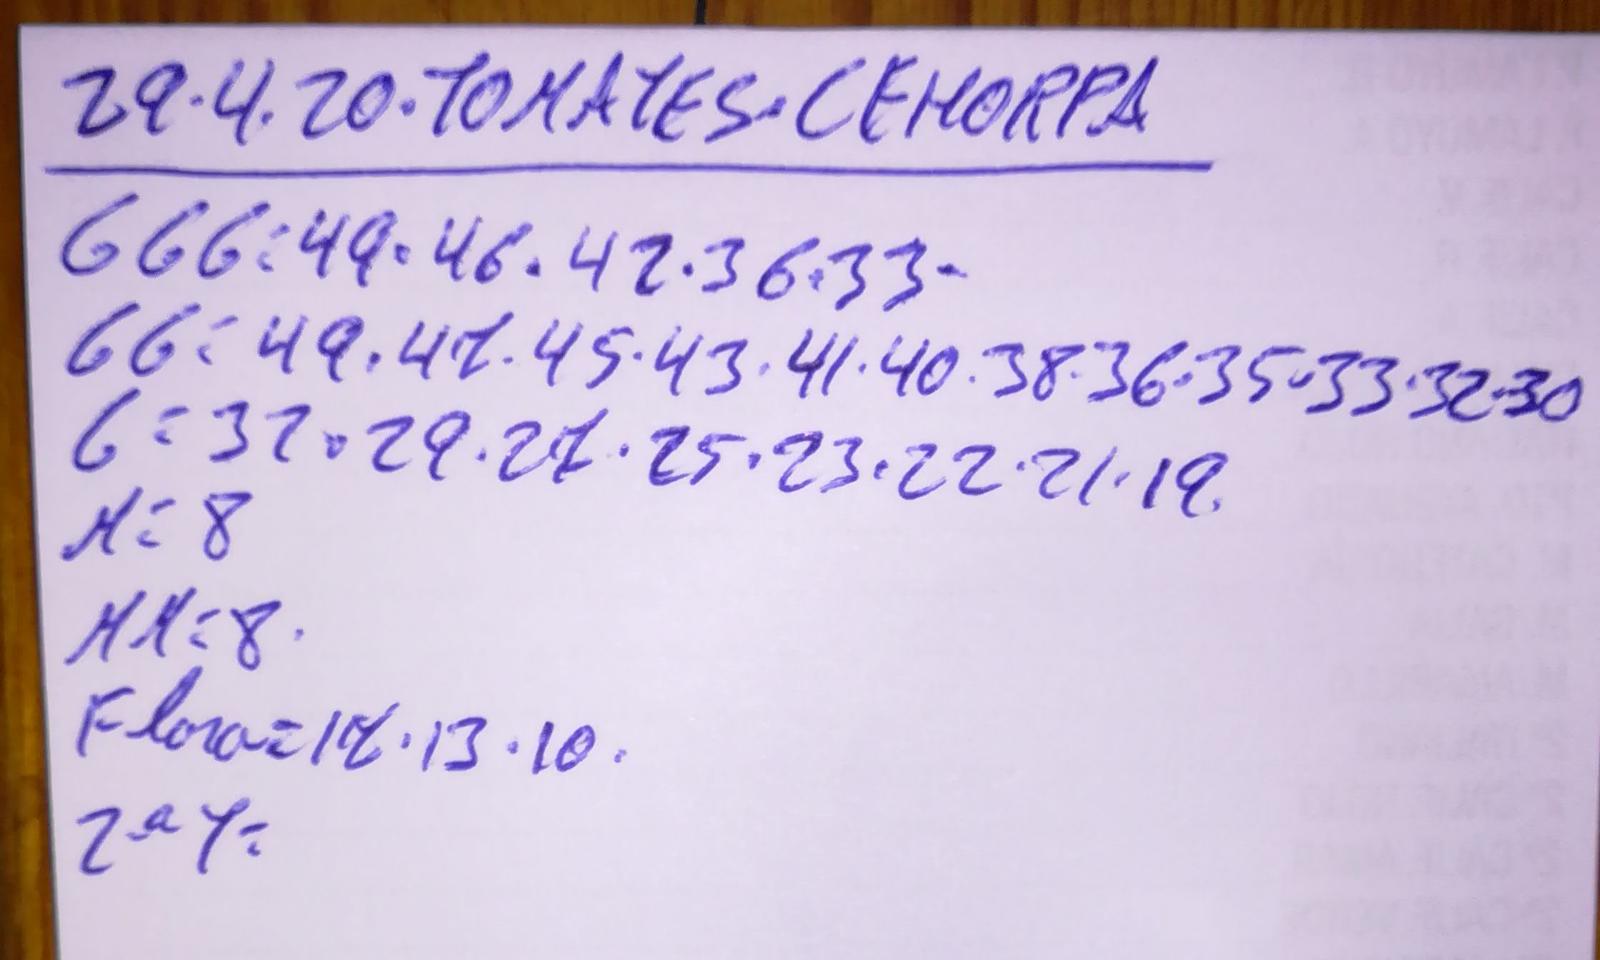 29.4.20.TOMATES.CEHORPA
GGG=49.46.42.36.33-
GG=49.47.45.43.41.40.38.36.35.33.32.30
G=32.29.27.25.23.22.21.19.
M=8
MM=8.
Flora=17.13.10.
2ªT=